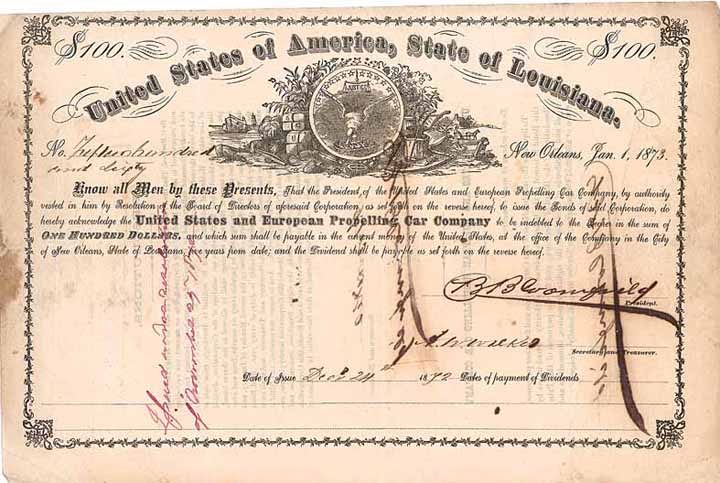 $100.
United States of America, State of Louisiana.
$100.
JUSTICE
No. Fifteen hundred
and sixty
New Orleans, Jan. 1, 1873.
Know all Men by these Presents, That the President, of the United States and European Propelling Car Company, by authority
vested in him by Resolution of the Board of Directors of aforesaid Corporation, as set forth on the reverse hereof, to issue the Bonds of said Corporation, do
hereby acknowledge the United States and European Propelling Car Company to be indebted to the Bearer in the sum of
ONE HUNDRED DOLLARS, and which sum shall be payable in the current money of the United States, at the office of the Company in the City
of New Orleans, State of Louisiana, five years from date; and the Dividend shall be payable as set forth on the reverse hereof.
B Bloomfield
President.
Walker
Secretary and Treasurer.
Date of Issue Dec 24th 1872 Dates of payment of Dividends
Issued under
of